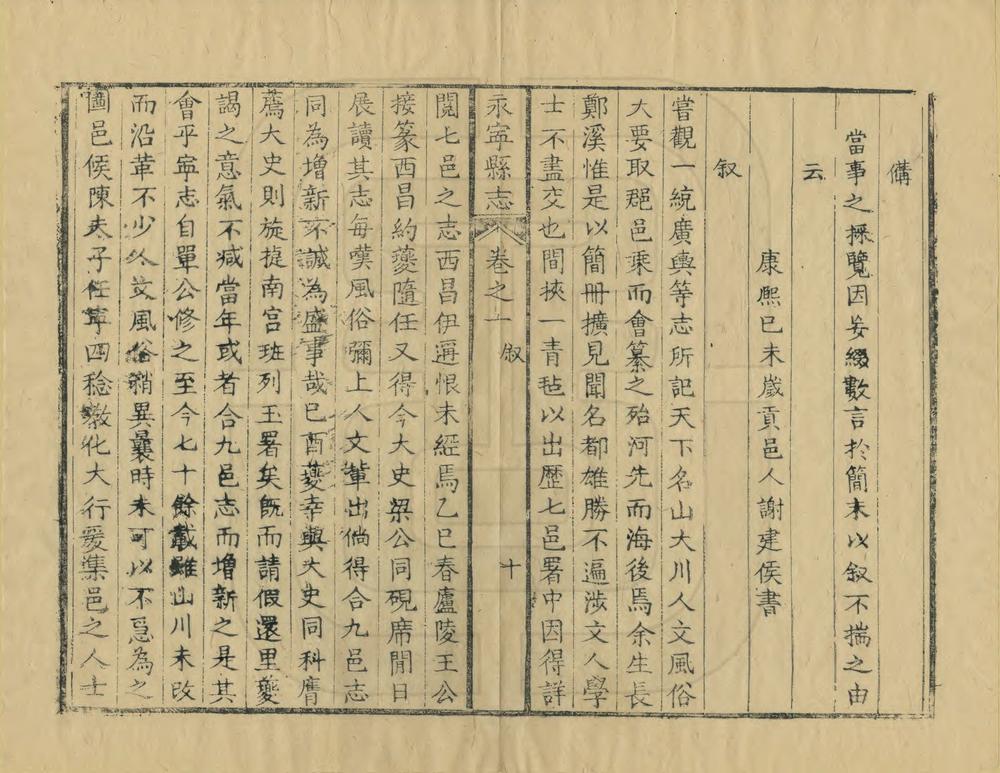 備
當事之採覽因妄綴數言於簡末以叙不揣之由
云
康熙己未歲貢邑人謝建侯書
叙
嘗觀一統廣輿等志所記天下名山大川人文風俗
大要取郡邑乘而會纂之殆河先而海後焉余生長
鄭溪惟是以簡冊擴見聞名都雄勝不遍涉文人學
士不盡交也間挾一青毡以出歷七邑署中因得詳
永寧縣志 卷之一 叙 十
閱七邑之志西昌伊邇恨未經焉乙巳春廬陵王公
接篆西昌約夔隨任又得今大史梁公同硯席閒日
展讀其志每嘆風俗彌上人文輩出倘得合九邑志
同為增新不誠為盛事哉己酉夔幸與大史同科膺
薦大史則旋捷南宮班列玉署矣既而請假還里夔
謁之意氣不减當年或者合九邑志而增新之是其
會乎寧志自單公修之至今七十餘載雖山川未改
而沿革不少人文風俗稍異曩時未可以不亟為之
圖邑侯陳夫子任寧四稔敎化大行爰集邑之人士